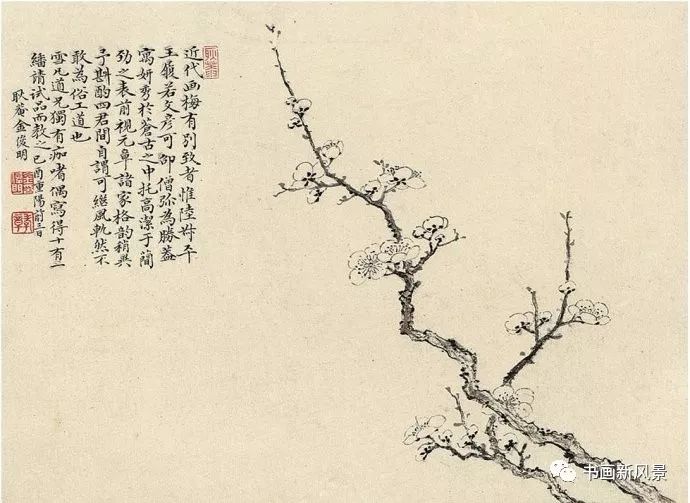 近代画梅有別致者惟陸叔平
王履若文彦可邵僧弥為勝蓋
寓妍秀於蒼古之中托髙潔于簡
勁之表前視元章諸家格韵稍異
予斟酌四君間自謂可繼風軌然不
敢為俗工道也
雪凡道兄獨有痂嗜偶寫得十有一
繙請試品而教之己酉重陽前三日
耿菴金俊明
书画新风景